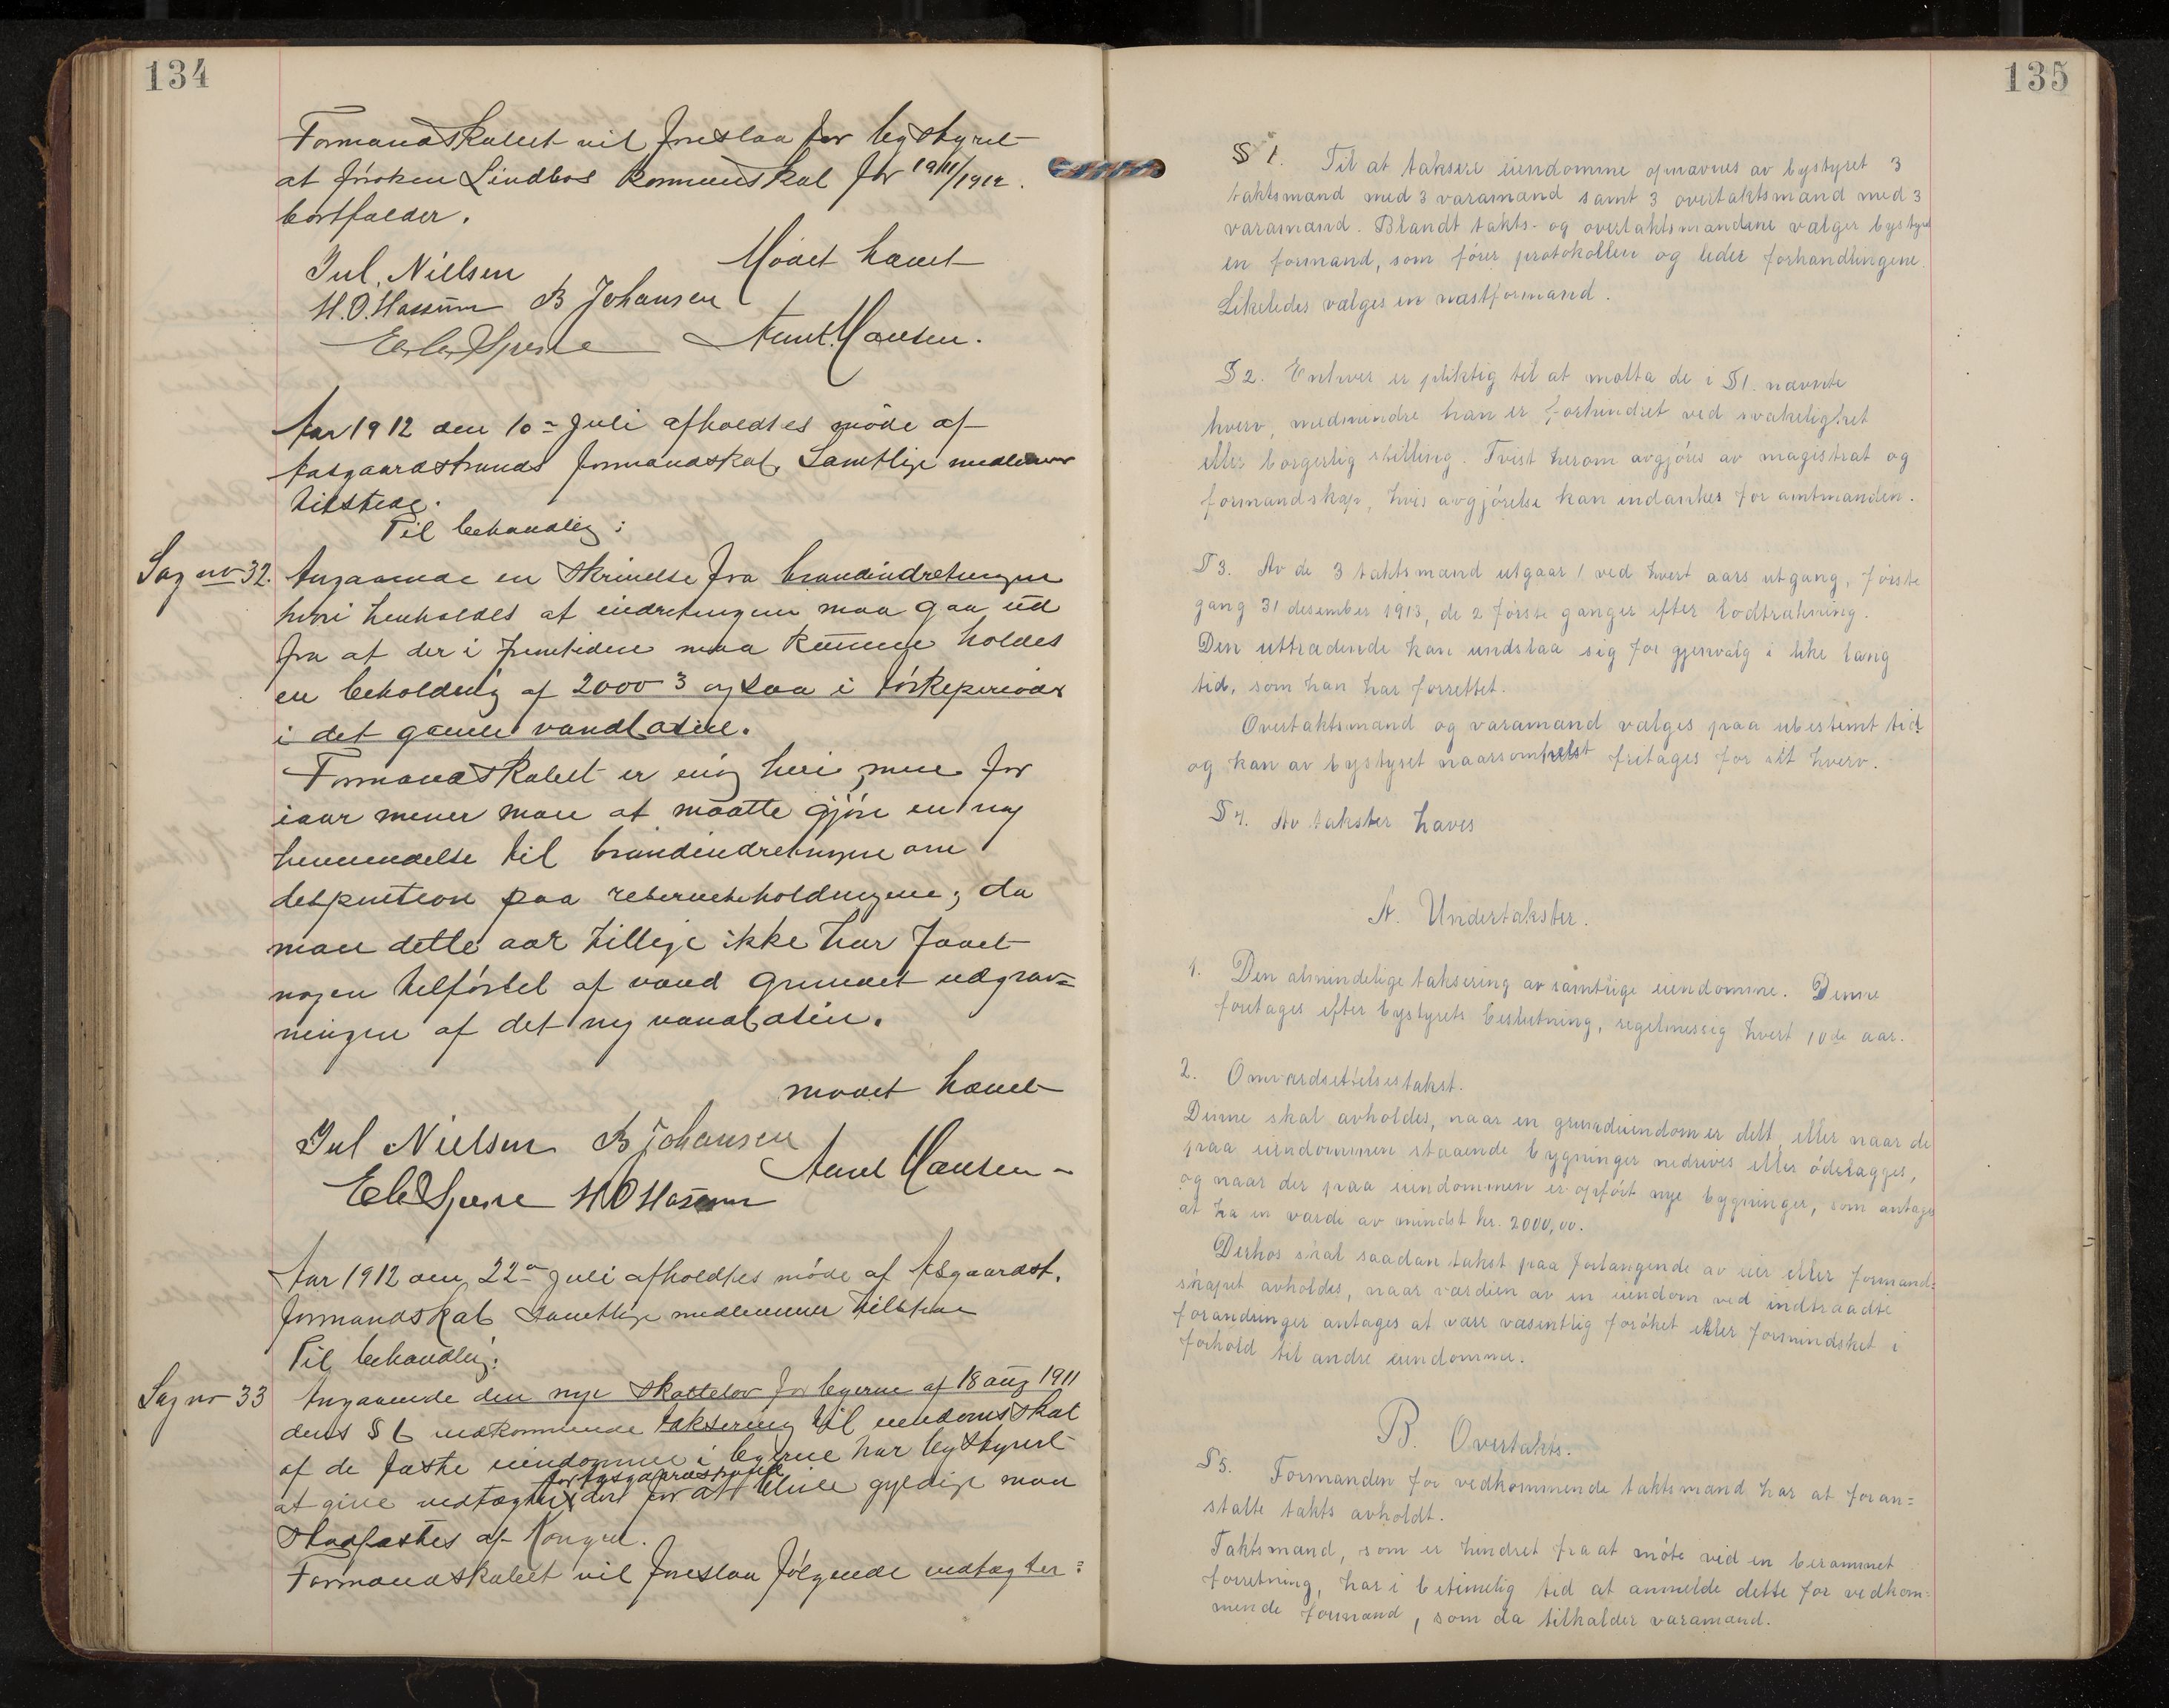 134
Formandskabet vil foreslaa for bystyret
at frøken Lindbos kommuneskat for 1911/1912.
bortfalder.
Mødet hævet
Jul. Nielsen
H.O. Hassum B Johansen
Aunt. Hansen.
Aar 1912 den 10de Juli afholdtes møde af
Aasgaardstrands formandskab. Samtlige medlemmer
tilstede.
Til behandling:
Sag no 32. Angaaende en skrivelse fra brandindretningen
hvori henholdes at indretningen maa gaa ud
fra at der i fremtiden maa kunne holdes
en beholdning af 2000 3 ogsaa i tørkeperioder
i det gamle vandbasin.
Formandskabet er enig heri, men for
iaar mener man at maatte gjøre en ny
henvendelse til brandindretningen om
dispention paa reservebeholdningene; da
man dette aar tillige ikke har faaet
nogen tilførsel af vand grundet udgrav=
ningen af det ny vandbasin.
mødet hævet
Jul Nielsen B Johansen
Aunt Hansen
H O Hassum
Aar 1912 den 22de Juli afholdtes møde af Asgaardst.
formandskab samtlige medlemmer tilstede
Til behandling:
Sag no 33 Angaaende den nye skattelov for byerne af 18 aug 1911
dens § 6 vedkommende taksering til eiendomsskat
af de faste eiendomme i byerne har bystyret
for Aasgaardstrand
at give vedtægter der for at blive gyldige maa
stadfæstes af Kongen.
Formandskabet vil foreslaa følgende vedtægter:
135
§ 1. Til at taksere eiendomme opnævnes av bystyret 3
taktsmænd med 3 varamænd samt 3 overtaktsmænd med 3
varamænd. Blandt takts- og overtaktsmændene vælger bystyret
en formand, som fører protokollen og leder forhandlingene.
Likeledes vælges en næstformand.
§ 2. Enhver er pliktig til at motta de i § 1. nævnte
hverv, medmindre han er forhindret ved svakelighet
eller borgerlig stilling. Tvist herom avgjøres av magistrat og
formandskap, hvis avgjørelse kan indankes for amtmanden.
§ 3. Av de 3 taktsmænd utgaar 1 ved hvert aars utgang, første
gang 31 desember 1913, de 2 første ganger efter lodtrækning.
Den uttrædende kan undslaa sig for gjenvalg i like lang
tid, som han har forrettet.
Overtaktsmænd og varamænd vælges paa ubestemt tid
og kan av bystyret naarsomhelst fritages for sit hverv.
§ 4. Av takster haves
A. Undertakster.
1. Den almindelige taksering av samtlige eiendomme. Denne
foretages efter bystyrets beslutning, regelmessig hvert 10de aar.
2. Omværdsættelsestakst.
Denne skal avholdes, naar en grundeiendom er delt, eller naar de
paa eiendommen staaende bygninger nedrives eller ødelægges,
og naar der paa eiendommen er opført nye bygninger, som antages
at ha en værdi av mindst kr. 2000,00.
Derhos skal saadan takst paa forlangende av eier eller formand=
skapet avholdes, naar værdien av en eiendom ved indtraadte
forandringer antages at være væsentlig forøket eller formindsket i
forhold til andre eiendomme.
B. Overtakts.
§ 5. Formanden for vedkommende taktsmænd har at foran=
stalte takts avholdt.
Taktsmænd, som er hindret fra at møte ved en berammet
forretning, har i betimelig tid at anmelde dette for vedkom=
mende formand, som da tilkalder varamænd.